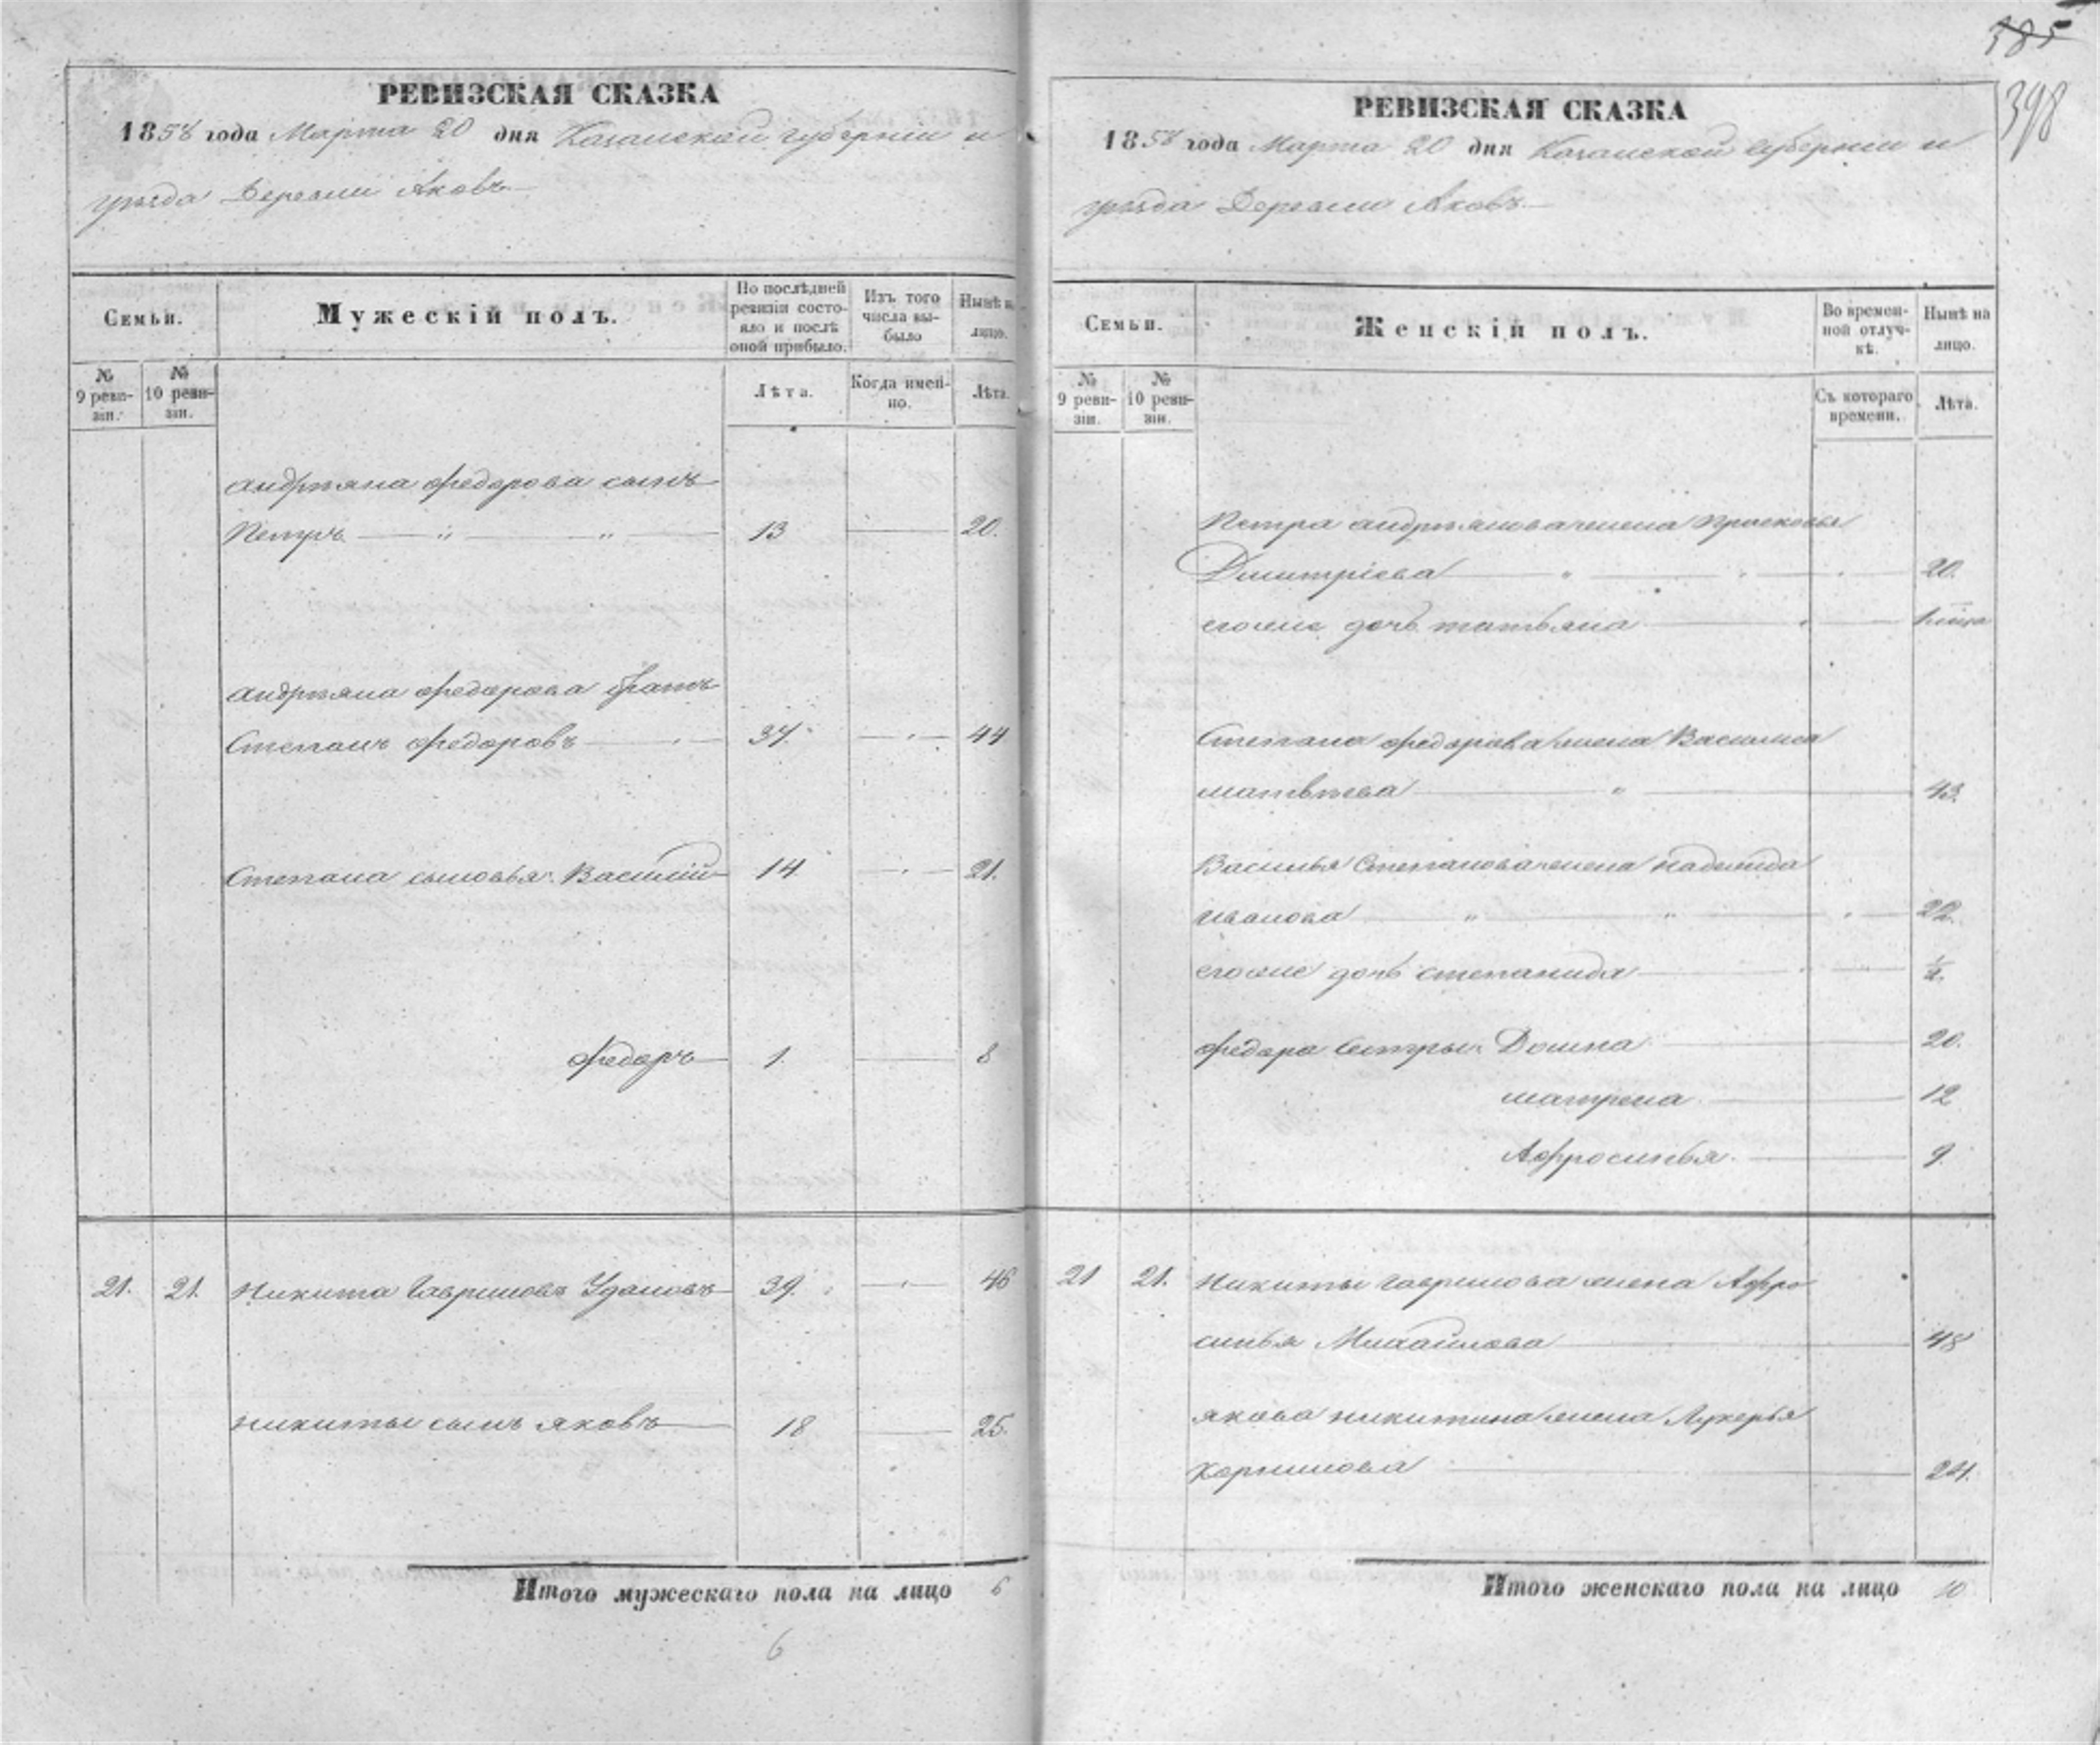 РЕВИЗСКАЯ СКАЗКА
1858 года Марта 20 дня Казанской губернии и
уѣзда Деревни Аковъ
Семьи.
Мужескій полъ.
По послѣдней ревизіи состояло и послѣ оной прибыло.
Изъ того числа выбыло
Нынѣ на лицо.
№ 9 ревизіи.
№ 10 ревизіи.
Лѣта.
Когда именно.
Лѣта.
Андрѣяна Федорова сынъ
Петръ — „ — „ — 13 — 20.
Андрѣяна Федорова братъ
Степанъ Федоровъ — 37. — „ — 44
Степана сыновья: Василій 14 — „ — 21.
Федоръ 1. — 8
21. 21. Никита Гавриловъ 39. — „ — 46
Никиты сынъ Яковъ 18 — 25.
Итого мужескаго пола на лицо 6
6
385
398
РЕВИЗСКАЯ СКАЗКА
1858 года Марта 20 дня Казанской губерніи и
уѣзда Деревни Аковъ
Семьи.
Женскій полъ.
Во временной отлучкѣ.
Нынѣ на лицо.
№ 9 ревизіи.
№ 10 ревизіи.
Съ котораго времени.
Лѣта.
Петра Андрѣянова жена Прасковья
Димитріева — „ — 20.
его же дочь Татьяна
Степана Федорова жена Василиса
Матвѣева — „ — 43.
Василья Степанова жена Надежда
Иванова — „ — „ — 22.
его же дочь Степанида — ½.
Федора сестры: Домна — 20.
Матрена — 12
Афросинья — 9.
21 21. Никиты Гаврилова жена Афро
синья Михайлова — 48
Якова Никитина жена Лукерья
Корнилова — 24.
Итого женскаго пола на лицо 10